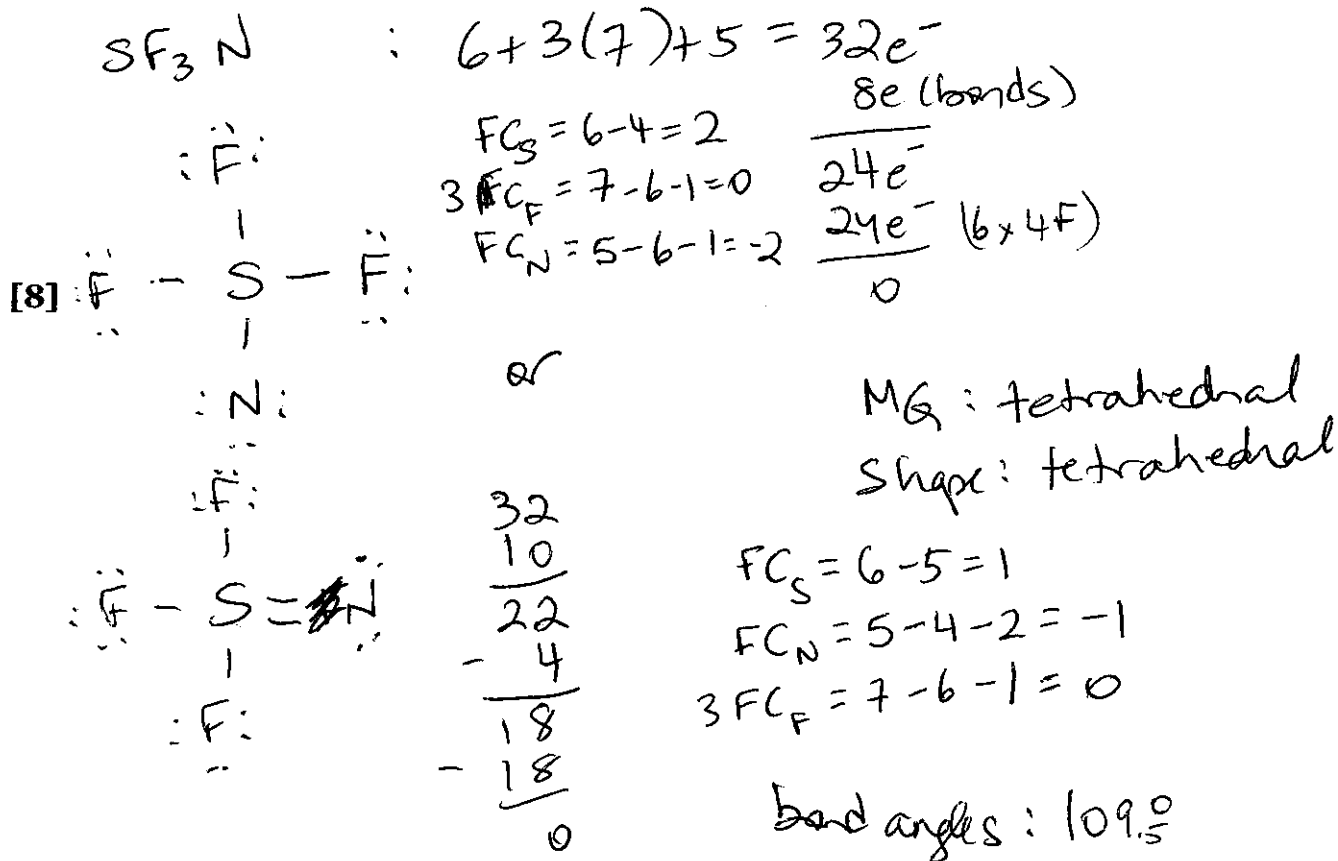 SF₃N : 6+3(7)+5 = 32e⁻
8e (bonds)
FC_S = 6-4 = 2
24e⁻
3 FC_F = 7-6-1=0
24e⁻ (6x4F)
FC_N = 5-6-1=-2
0
:F:
[8] :F - S - F:
:N:
or
MG : tetrahedral
Shape : tetrahedral
:F:
:F - S = N
:F:
32
10
22
- 4
18
- 18
0
FC_S = 6-5 = 1
FC_N = 5-4-2 = -1
3 FC_F = 7-6-1 = 0
bond angles : 109.5°